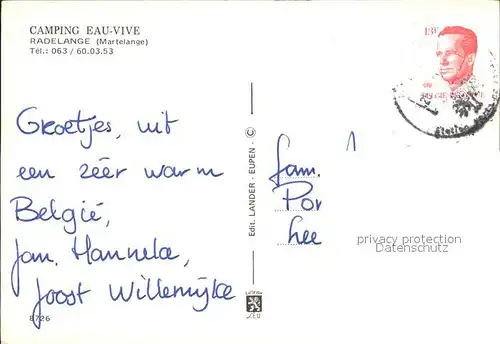 CAMPING EAU-VIVE
RADELANGE (Martelange)
Tél.: 063 / 60.03.53
13F
BELGIE
Groetjes, uit
een zéér warm
België,
Jan, Hanneke,
Joost Willemijke
Edit. LANDER - EUPEN - ©
fam.
Por
hee
privacy protection
Datenschutz
8726